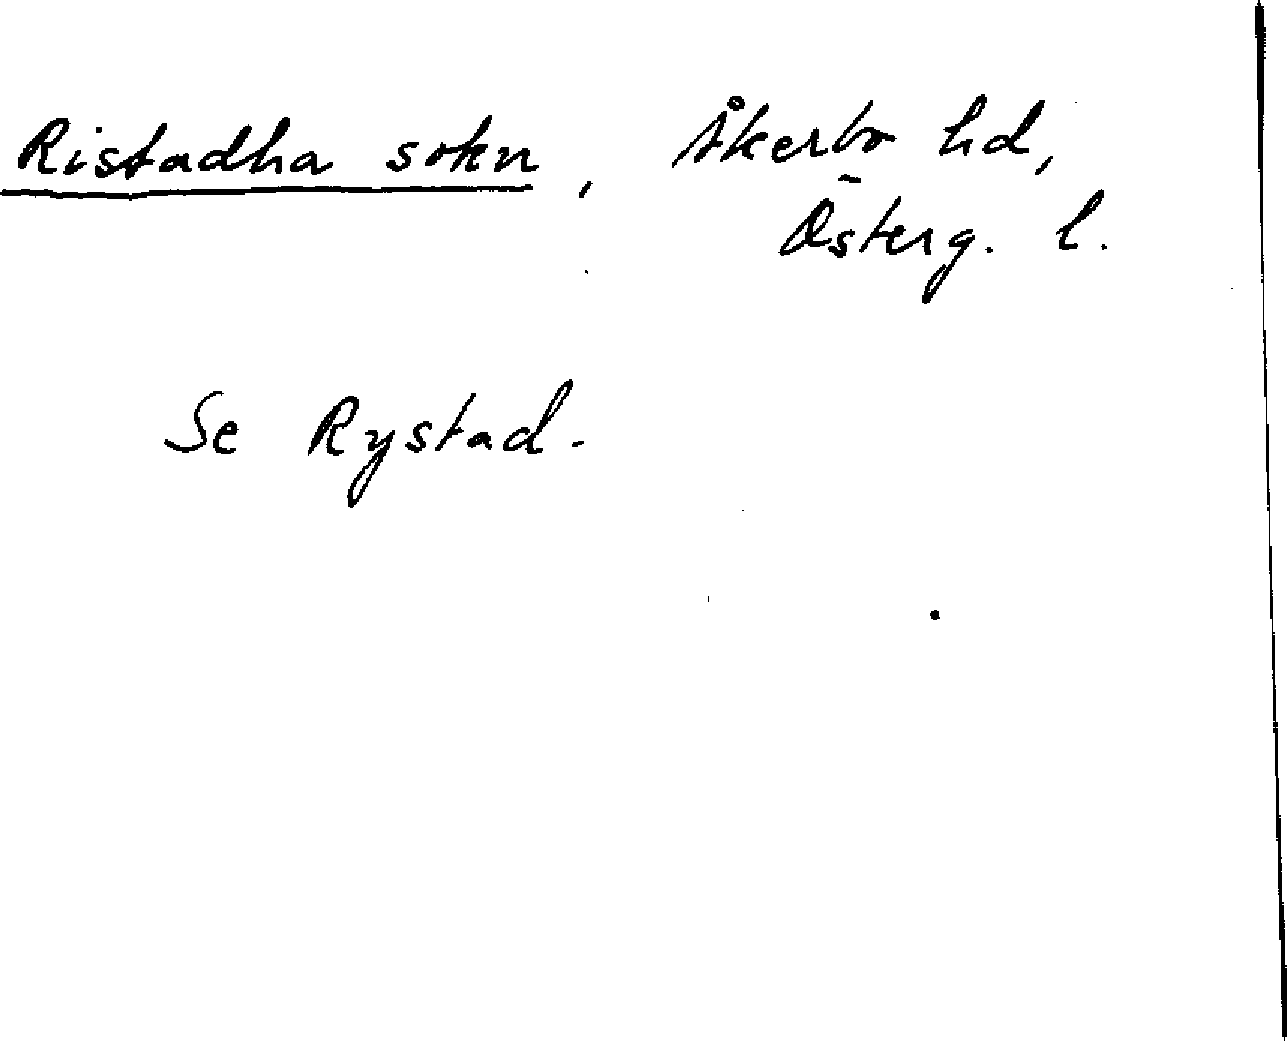 Ristadha sokn, Åkerbo hd,
Österg. l.
Se Rystad.